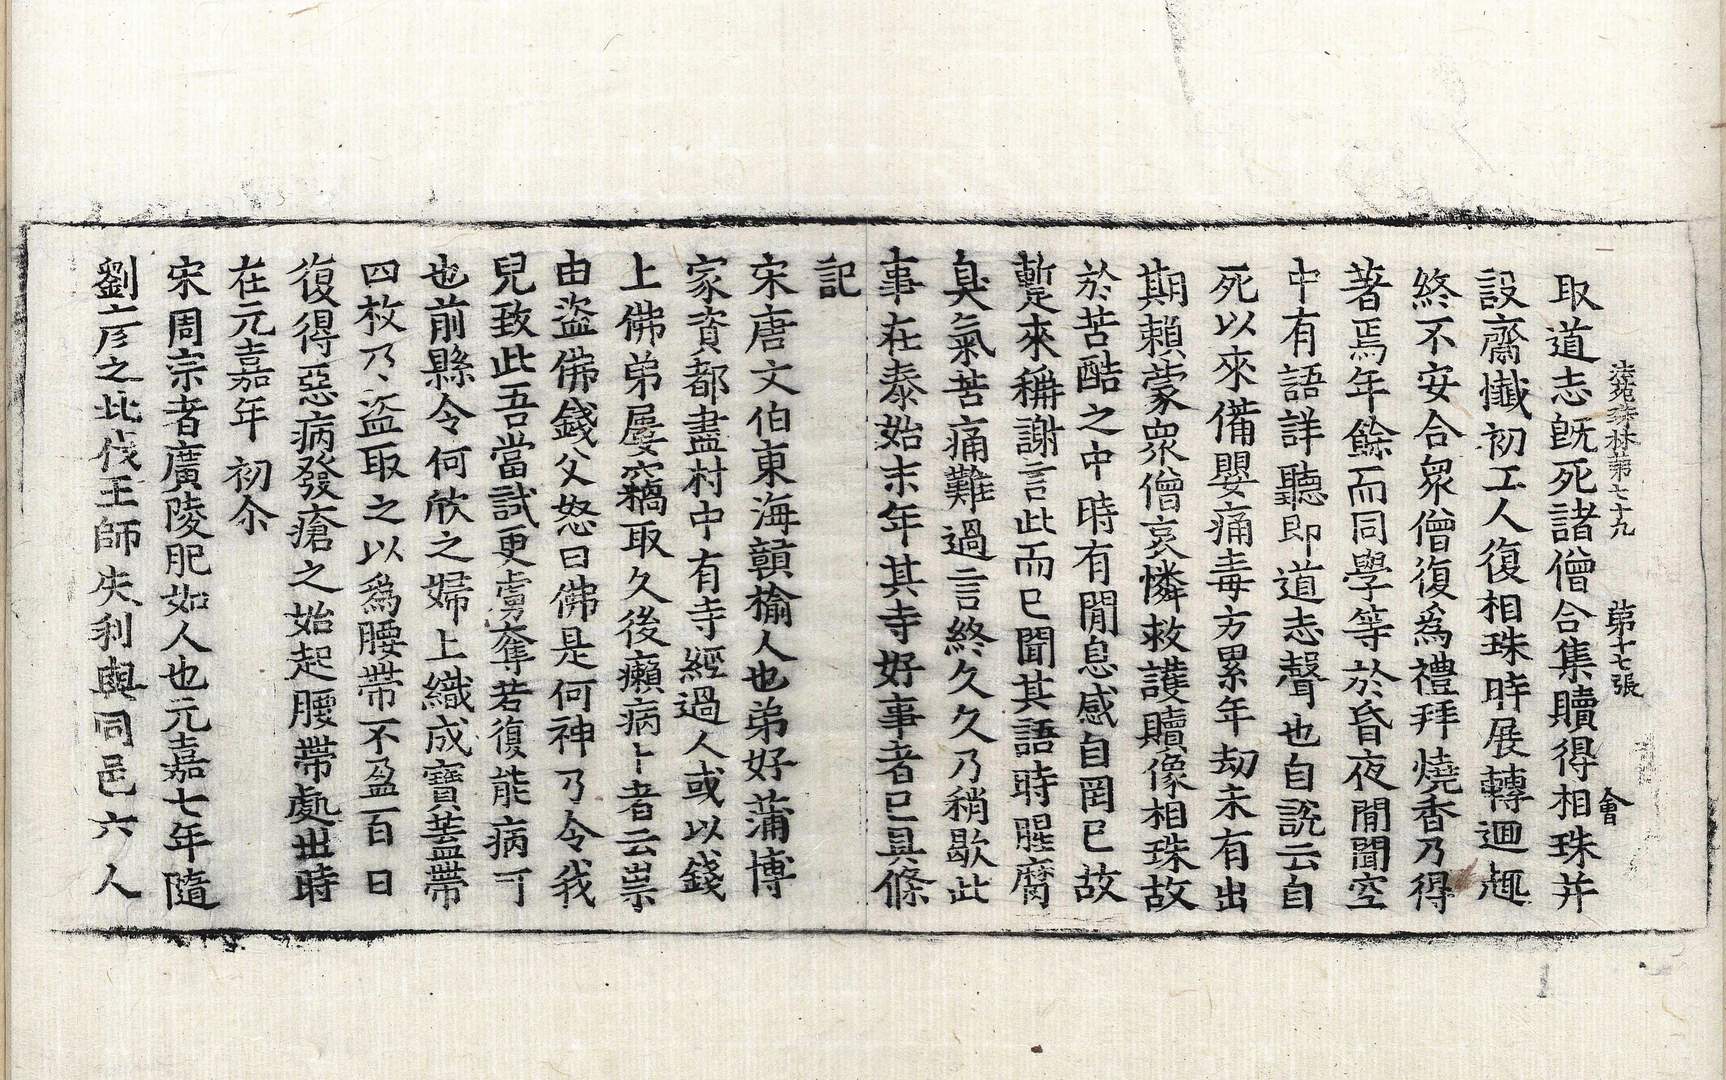 法苑珠林第七十九 第十七張 會
取道志旣死諸僧合集贖得相珠并
設齋懺初工人復相珠時展轉迴趣
終不安合衆僧復爲禮拜燒香乃得
著焉年餘而同學等於昏夜閒聞空
中有語詳聽即道志聲也自說云自
死以來備嬰痛毒方累年劫未有出
期賴蒙衆僧哀憐救護贖像相珠故
於苦酷之中時有閒息感自罔已故
蹔來稱謝言此而已聞其語時腥腐
臭氣苦痛難過言終久久乃稍歇此
事在泰始末年其寺好事者已具條
記
宋唐文伯東海贛榆人也弟好蒲博
家資都盡村中有寺經過人或以錢
上佛弟屢竊取久後癩病卜者云祟
由盜佛錢父怒曰佛是何神乃令我
兒致此吾當試更虜奪若復能病可
也前縣令何欣之婦上織成寶蓋帶
四枚乃盜取之以爲腰帶不盈百日
復得惡病發瘡之始起腰帶處世時
在元嘉年初尒
宋周宗者廣陵肥如人也元嘉七年隨
劉彥之北伐王師失利與同邑六人